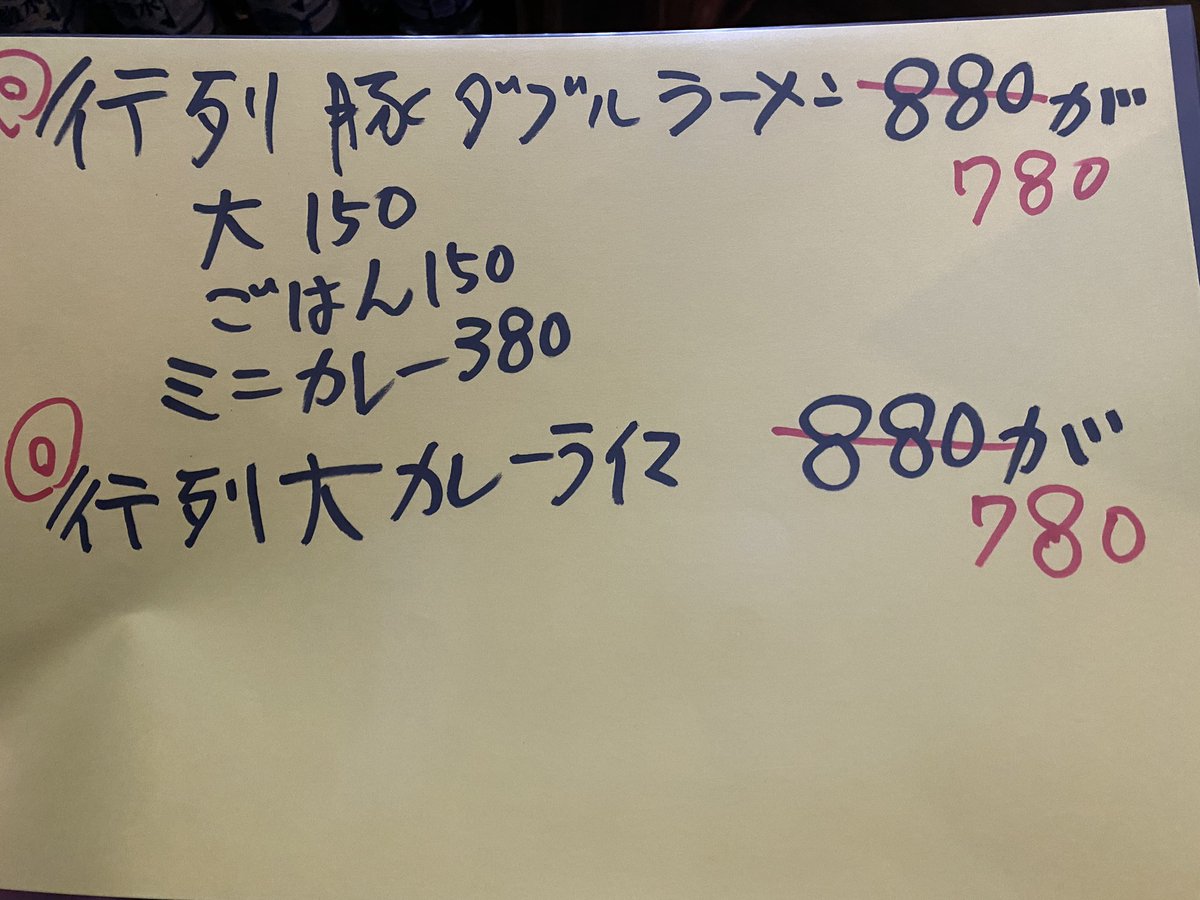 ◎行列 豚ダブルラーメン 880が
780
大 150
ごはん150
ミニカレー380
◎行列大カレーライス 880が
780